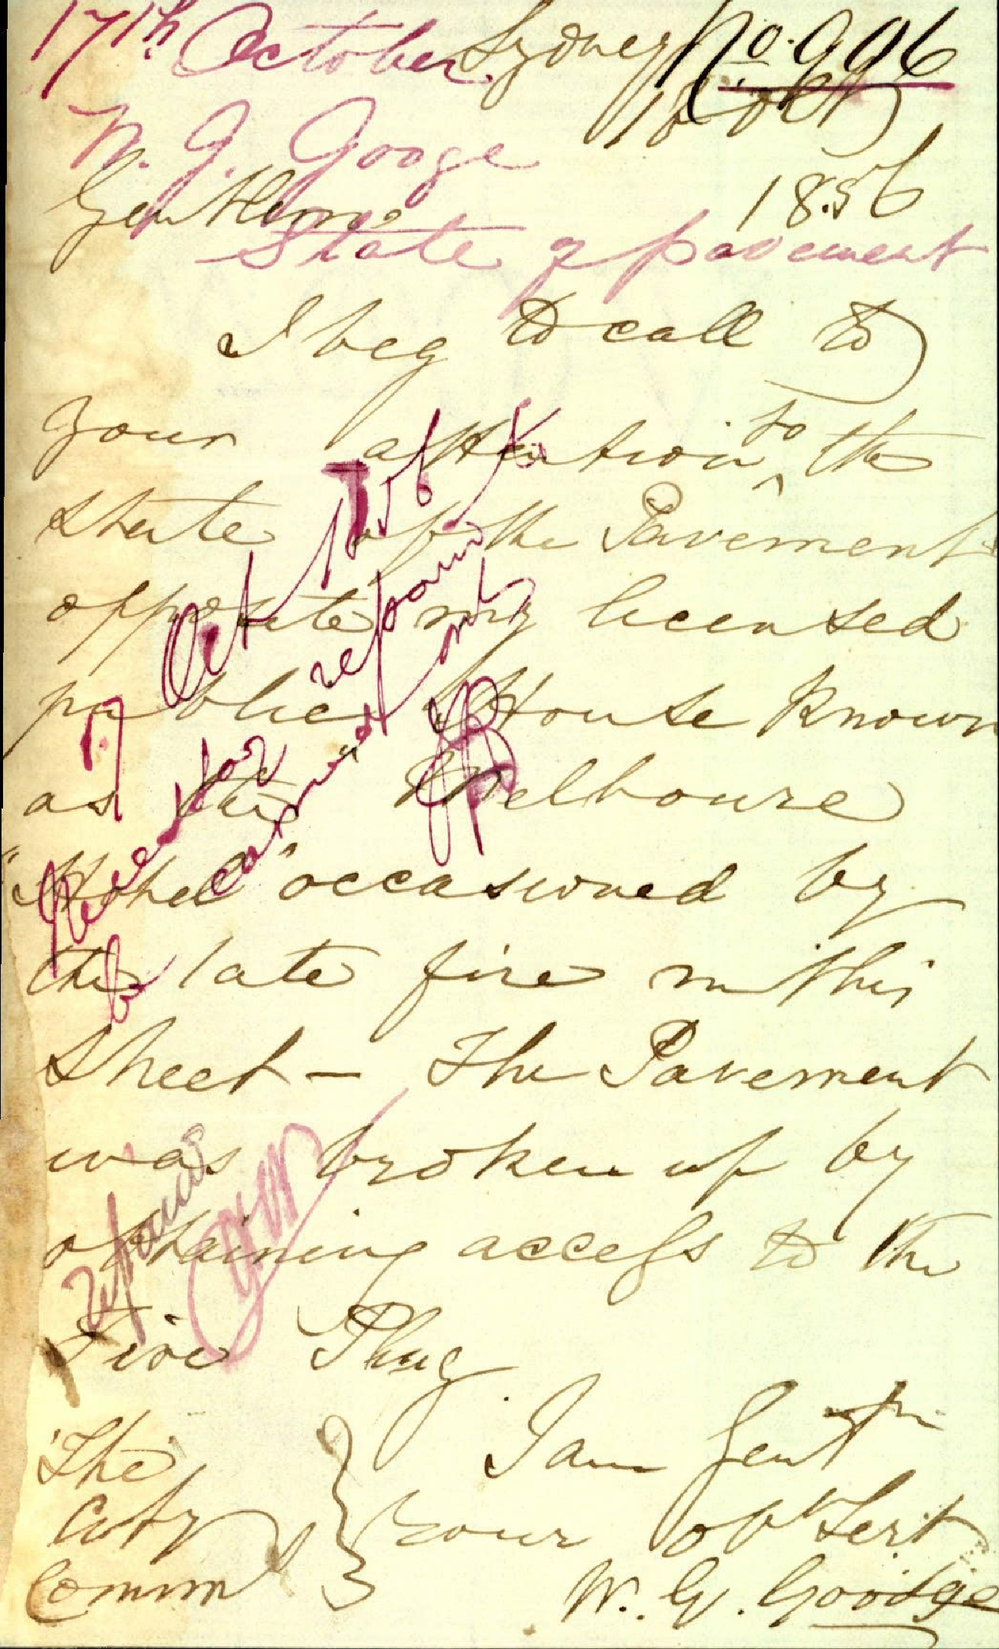 17th October Sydney No. 906
16 Oct
W. G. Googe
1856
Gentlemen
State of pavement
I beg to call to
your attention to the
state of the Pavement
opposite my licensed
public House known
as the "Melbourne
"Hotel" occasioned by
the late fire in this
Street – The Pavement
was broken up by
obtaining access to the
Fire Plug
I am Gentn
The
City
Comm
Your obt Sert
W. G. Goodge
17 Oct 1856
repairs
be carried out
repairs